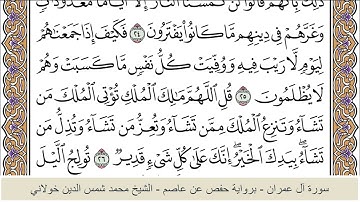 ذَٰلِكَ بِأَنَّهُمْ قَالُوا لَن تَمَسَّنَا النَّارُ إِلَّا أَيَّامًا مَّعْدُودَاتٍ
وَغَرَّهُمْ فِي دِينِهِم مَّا كَانُوا يَفْتَرُونَ ٢٤ فَكَيْفَ إِذَا جَمَعْنَاهُمْ
لِيَوْمٍ لَّا رَيْبَ فِيهِ وَوُفِّيَتْ كُلُّ نَفْسٍ مَّا كَسَبَتْ وَهُمْ
لَا يُظْلَمُونَ ٢٥ قُلِ اللَّهُمَّ مَالِكَ الْمُلْكِ تُؤْتِي الْمُلْكَ مَن
تَشَاءُ وَتَنزِعُ الْمُلْكَ مِمَّن تَشَاءُ وَتُعِزُّ مَن تَشَاءُ وَتُذِلُّ مَن
تَشَاءُ بِيَدِكَ الْخَيْرُ إِنَّكَ عَلَىٰ كُلِّ شَيْءٍ قَدِيرٌ ٢٦ تُولِجُ اللَّيْلَ
سورة آل عمران - برواية حفص عن عاصم - الشيخ محمد شمس الدين خولاني